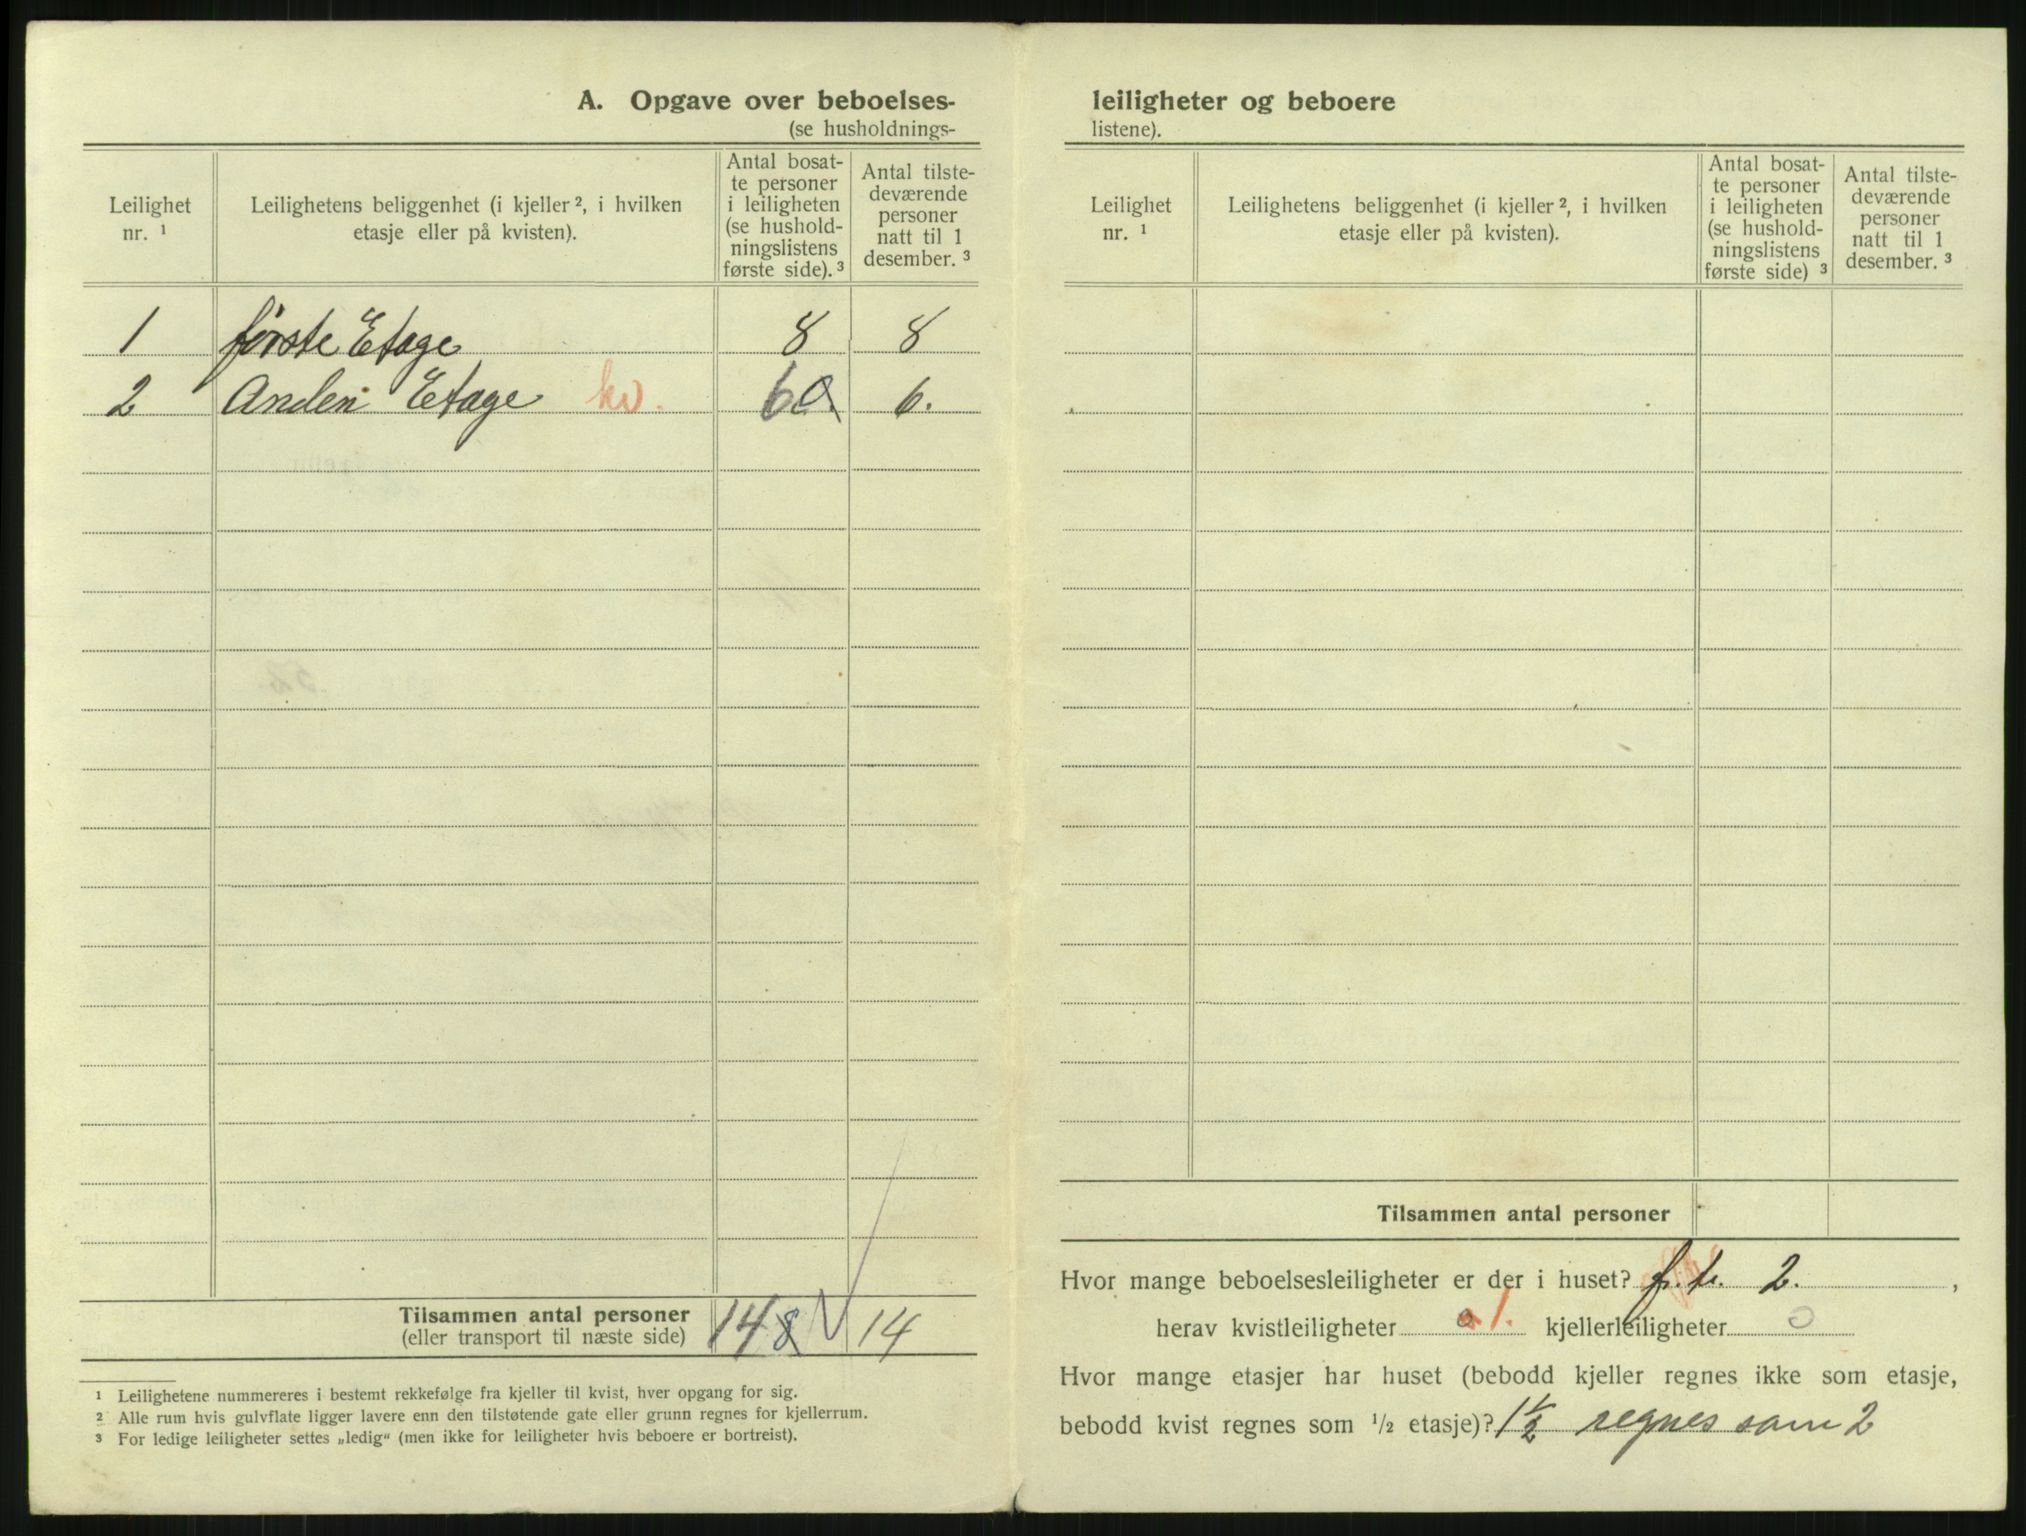 A. Opgave over beboelses-
(se husholdnings-
Leilighet
nr. ¹
Leilighetens beliggenhet (i kjeller ², i hvilken
etasje eller på kvisten).
Antal bosat-
te personer
i leiligheten
(se hushold-
ningslistens
første side). ³
Antal tilste-
deværende
personer
natt til 1
desember. ³
1 første Etage 8 8
2 Anden Etage kv. 6 0 6.
Tilsammen antal personer
(eller transport til næste side) 14 8 14
¹ Leilighetene nummereres i bestemt rekkefølge fra kjeller til kvist, hver opgang for sig.
² Alle rum hvis gulvflate ligger lavere enn den tilstøtende gate eller grunn regnes for kjellerrum.
³ For ledige leiligheter settes „ledig“ (men ikke for leiligheter hvis beboere er bortreist).
leiligheter og beboere
listene).
Leilighet
nr. ¹
Leilighetens beliggenhet (i kjeller ², i hvilken
etasje eller på kvisten).
Antal bosat-
te personer
i leiligheten
(se hushold-
ningslistens
første side) ³
Antal tilste-
deværende
personer
natt til 1
desember. ³
Tilsammen antal personer
Hvor mange beboelsesleiligheter er der i huset? 2. ,
herav kvistleiligheter 1. kjellerleiligheter 0
Hvor mange etasjer har huset (bebodd kjeller regnes ikke som etasje,
bebodd kvist regnes som ¹/₂ etasje)? 1½ regnes som 2